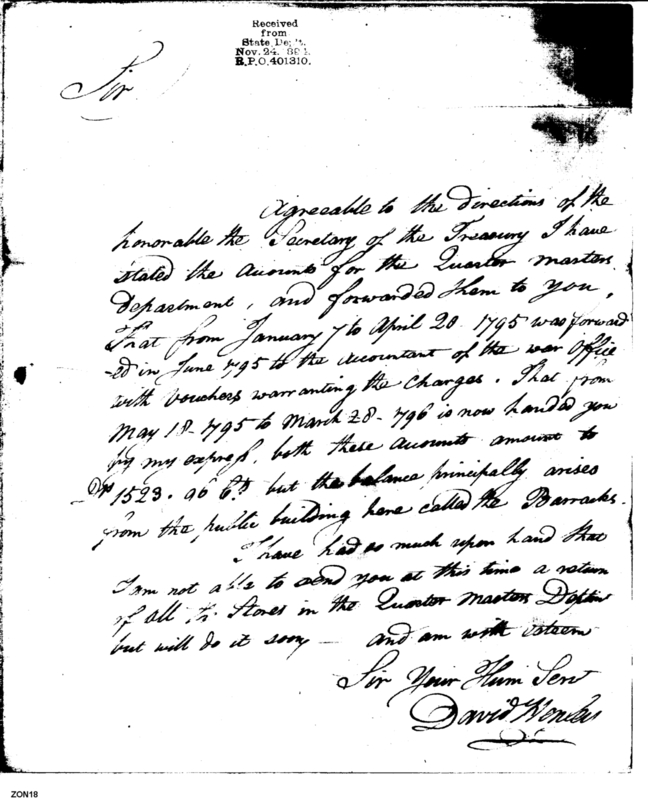 Received
from
State De
Nov. 24. 189
R.P.O. 401310.
Sir
Agreeable to the directions of the
honorable the Secretary of the Treasury I have
stated the Accounts for the Quarter masters
department, and forwarded them to you,
That from January 7 to April 20. 1795 was forward
-ed in June 1795 to the Accountant of the war Office
with Vouchers warranting the Charges. That from
May 18. 1795 to March 28. 1796 is now handed you
by my express, both these Accounts amount to
1523. 96 but the balance principally arises
from the public building here called the Barracks.
I have had so much upon hand that
I am not able to send you at this time a return
of all the Stores in the Quarter Masters
but will do it soon — and am with esteem
Sir Your Hum Serv
David
ZON18